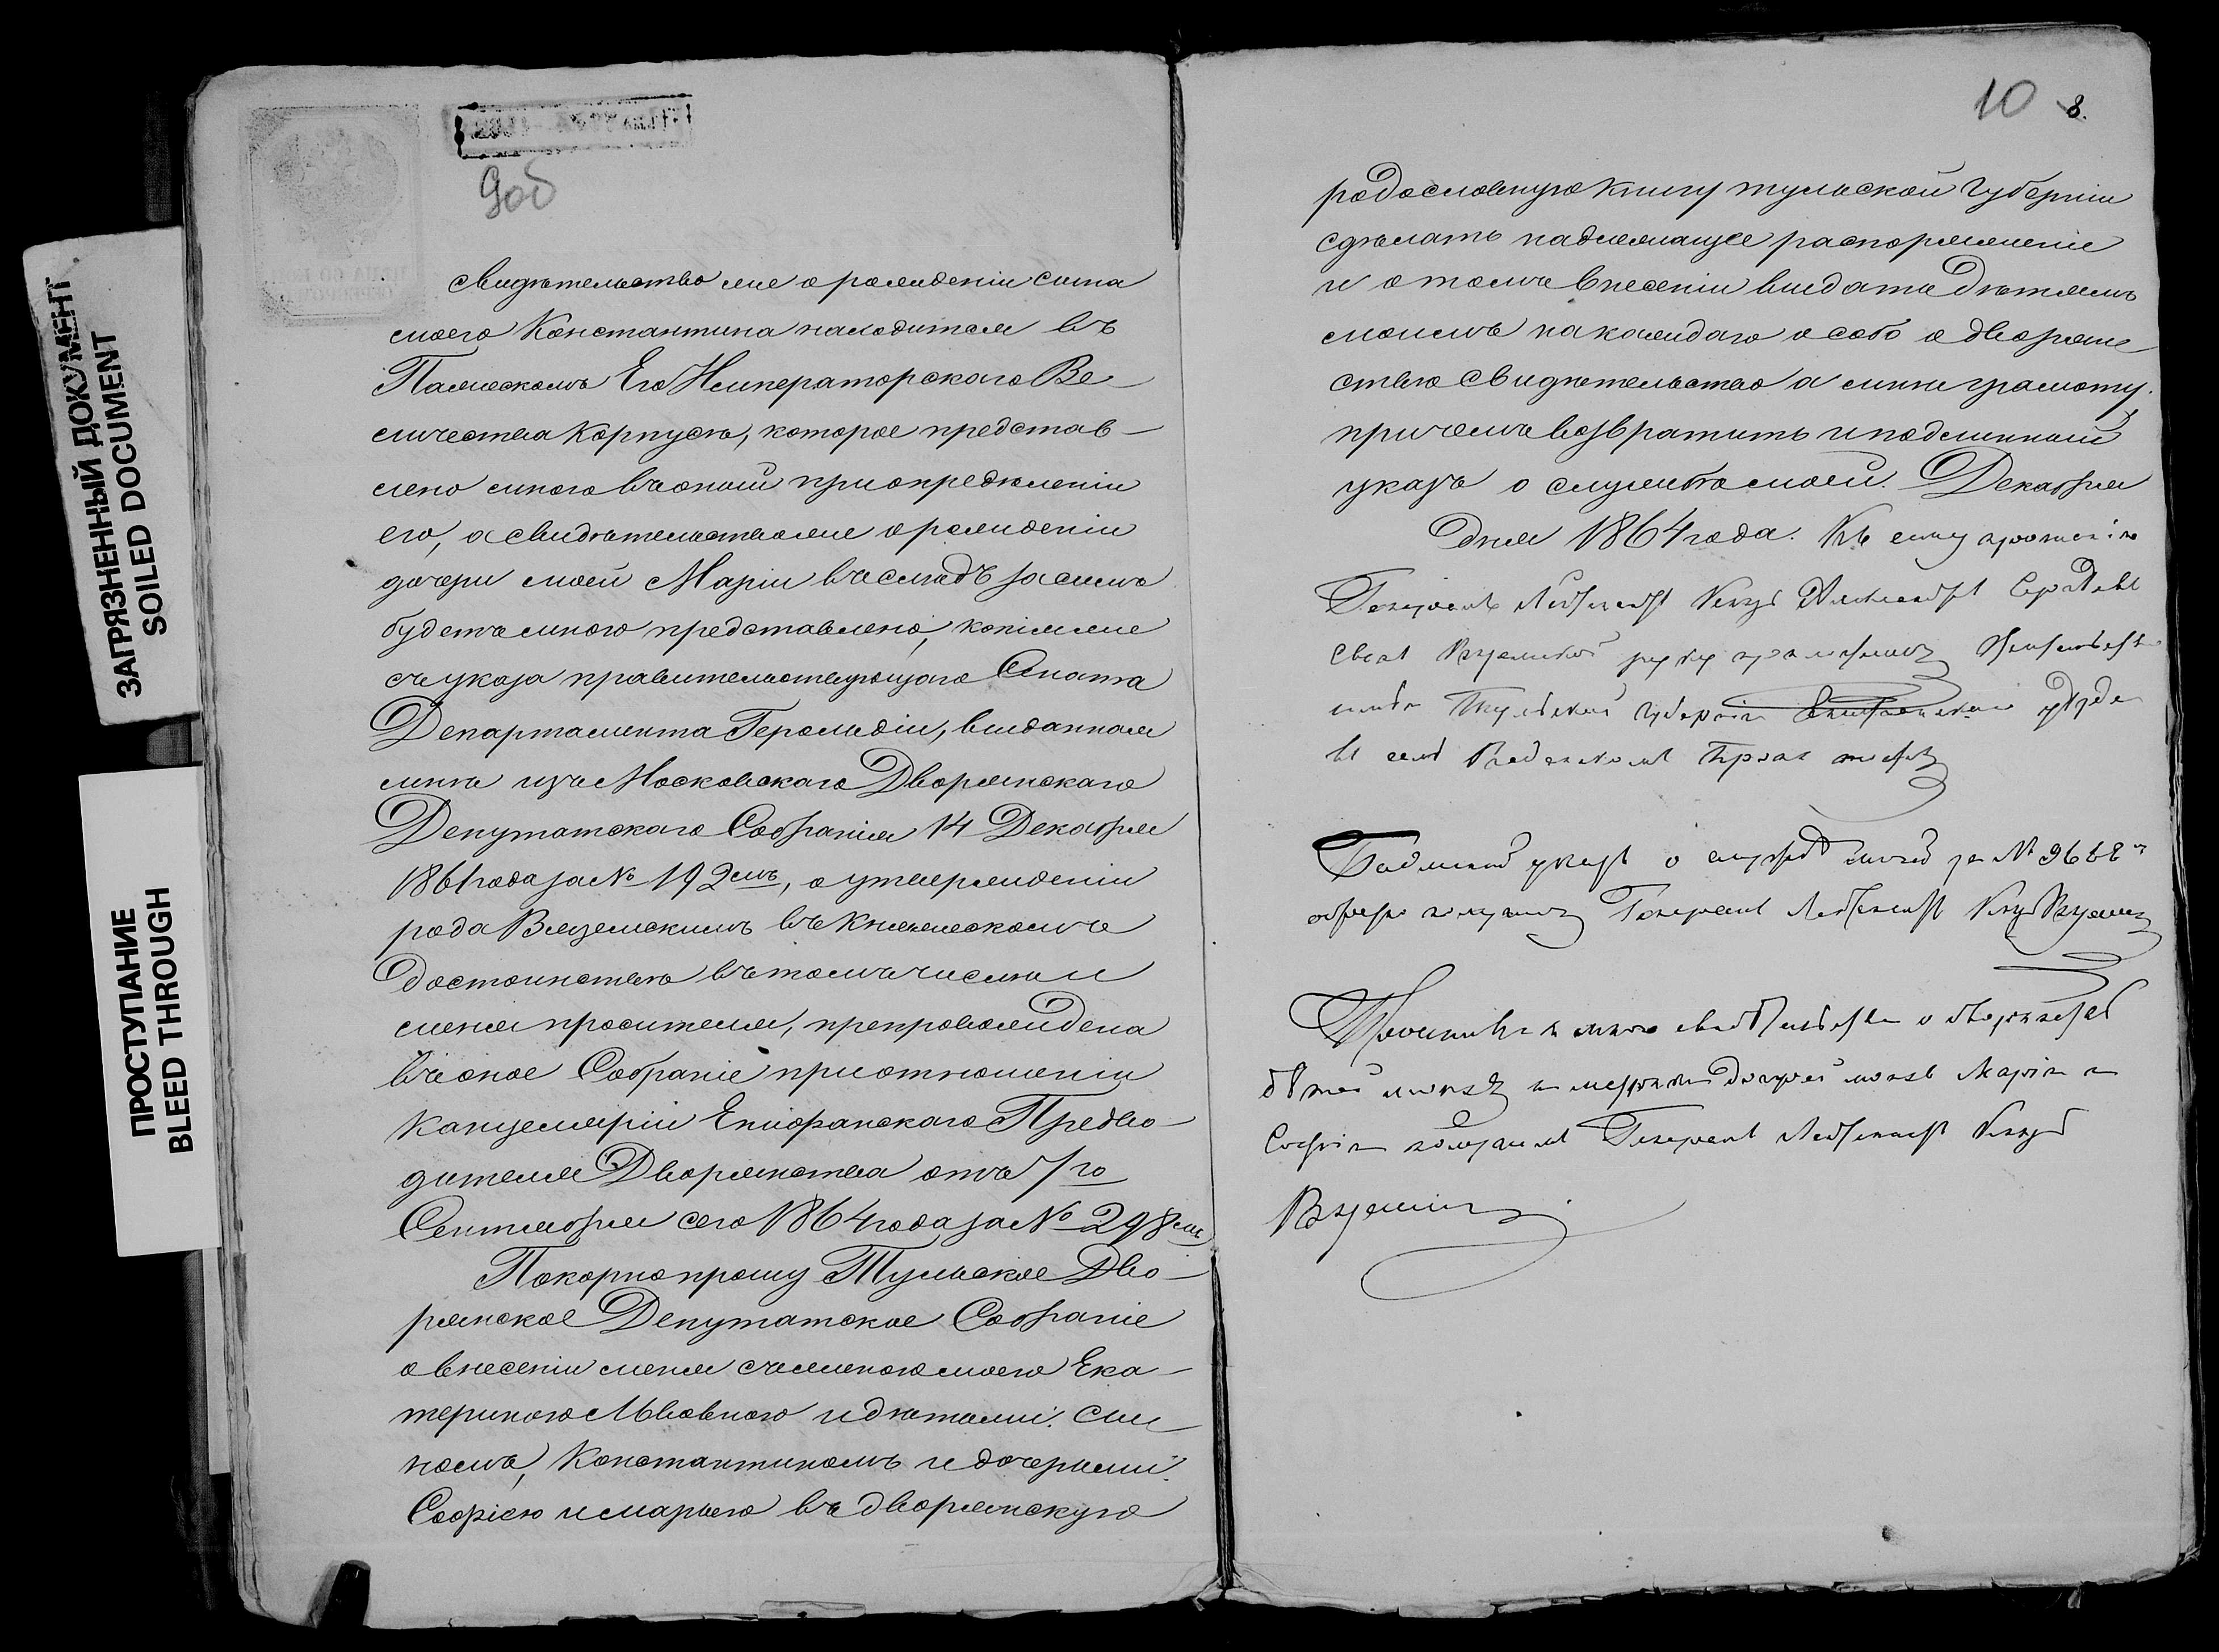 ЗАГРЯЗНЕННЫЙ ДОКУМЕНТ
SOILED DOCUMENT
ПРОСТУПАНИЕ
BLEED THROUGH
9об
свидѣтельство же о рожденіи сына
моего Константина находится въ
Пажескомъ Его Императорскаго Ве-
личества Корпусѣ, которое представ-
лено мною въ оный при опредѣленіи
его, а свидѣтельство же о рожденіи
дочери моей Маріи въ слѣдъ за симъ
будетъ мною представлено, копія же
съ указа правительствующаго Сената
Департамента Герольдіи, выданная
мнѣ изъ Московскаго Дворянскаго
Депутатскаго Собранія 14 Декабря
1861 года за № 192мъ, о утвержденіи
рода Вяземскимъ въ Княжескомъ
достоинствѣ въ томъ числѣ и
меня просителя, препровождена
въ оное Собраніе при отношеніи
Канцеляріи Епифанскаго Предво-
дителя Дворянства отъ 7го
Сентября сего 1864 года за № 298мъ
Покорно прошу Тульское Дво-
рянское Депутатское Собраніе
о внесеніи меня съ женою моею Ека-
териною Львовною и дѣтьми: сы-
номъ, Константиномъ и дочерьми:
Софіею и Марьею въ дворянскую
10 8.
родословную книгу тульской губерніи
сдѣлать надлежащее распоряженіе
и о томъ внесеніи выдать дѣтямъ
моимъ на каждаго особо о дворян-
ствѣ свидѣтельство а мнѣ грамоту,
причемъ возвратить и подлинный
указъ о службѣ моей. Декабря
Дня 1864 года. Къ сему прошенію
Генералъ Лейтенантъ Князь Александръ Сергѣевъ
сынъ Вяземской руку приложилъ Жительство
имѣю Тульской губерніи Епифанскаго уѣзда
въ селѣ
Подлинной указъ о службѣ моей за №
обратно получилъ Генералъ Лейтенантъ Князь Вяземской
дѣтей моихъ дочерей моихъ Маріи и
Софіи получилъ Генералъ Лейтенантъ Князь
Вяземской